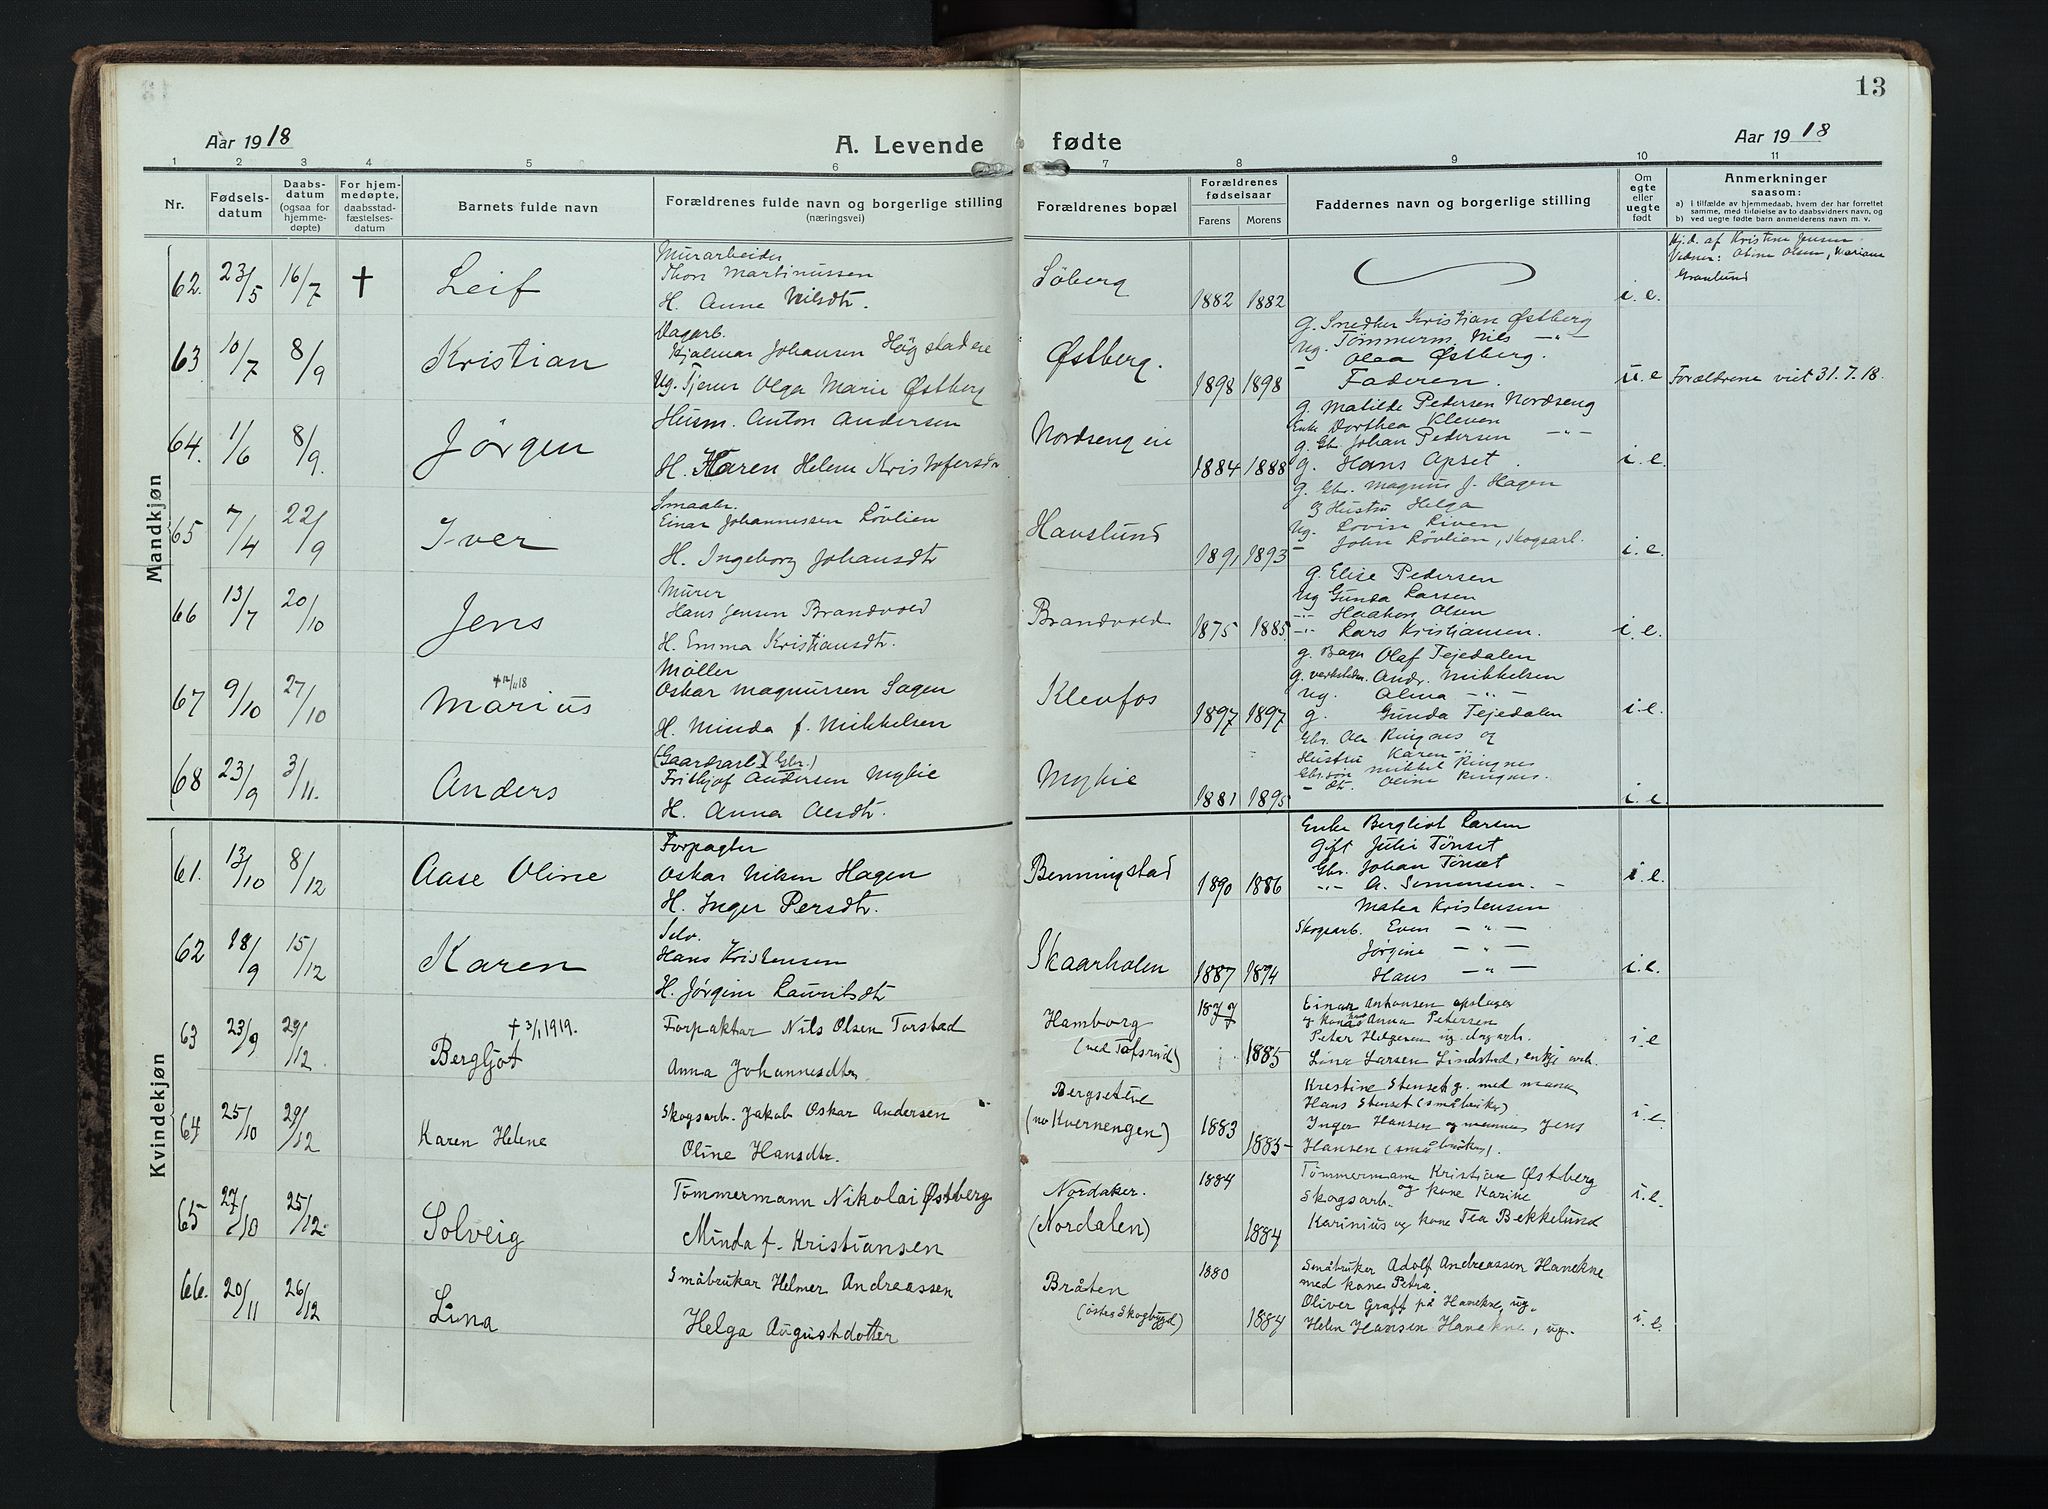 13
Aar 1918
A. Levende fødte
Aar 1918
1 2 3 4 5 6 7 8 9 10 11
Nr.
Fødsels-
datum
Daabs-
datum
(ogsaa for
hjemme-
døpte)
For hjem-
medøpte,
daabsstad-
fæstelses-
datum
Barnets fulde navn
Forældrenes fulde navn og borgerlige stilling
(næringsvei)
Forældrenes bopæl
Forældrenes
fødselsaar
Farens Morens
Faddernes navn og borgerlige stilling
Om
egte
eller
uegte
født
Anmerkninger
saasom:
a) I tilfælde av hjemmedaab, hvem der har forrettet
samme, med tilføielse av to daabsvidners navn, og
b) ved uegte fødte barn anmelderens navn m. v.
Mandkjøn
62. 23/5 16/7 † Leif
Murarbeider
Thor Martinussen
H. Anne Nilsdtr.
Søberg
1882 1882
i. e.
Hj.d. af Kristine Jensen.
Vidner: Oline Olsen, Mariane
Granlund
63. 10/7 8/9 Kristian
Dagarb.
Hjalmar Johansen Høgstad eie
Ug. Tjener Olga Marie Østberg
Østberg.
1898 1898
g. Snedker Kristian Østberg
Ug. Tømmerm. Nils -"-
Olaa Østberg.
- Faderen.
u. e
Forældrene viet 31.7.18.
64. 1/6 8/9. Jørgen
Husm. Anton Andersen
H. Karen Helene Kristofersdtr
Nordseng eie
1884 1888
g. Matilde Pedersen Nordseng
Enke Dorthea Kleven
g. Gbr. Johan Pedersen -"-
g. Hans Apset.
i. e.
65 7/4 22/9 Iver
Smaabr.
Einar Johannessen Løvlien
H. Ingeborg Johansdtr
Havslund
1891 1893
g. Gbr. Magnus J. Hagen
Hustru Helga
Ug. Lovise Liven
- John Løvlien, Skogsarb.
i. e.
66 13/7 20/10 Jens
Murer
Hans Jensen Brandvold
H. Emma Kristiansdtr.
Brandvold
1875 1885
g. Elise Pedersen
Ug Gunda Larsen
-"- Haakon Olsen
-"- Lars Kristiansen.
i. e.
67 9/10 27/10 Marius
† 12/11 18
Møller
Oskar Magnussen Sagen
H. Minda f. Mikkelsen
Klevfos
1897 1897
g. Bager Olaf Tejedalen
g. verkstedm. Andr. Mikkelsen
Ug. Alma -"-
g. Gunda Tejedalen
i. e.
68 23/9 3/11. Anders
(Gaardsarb.) (Gbr.)
Frithjof Andersen Myhre
H. Anna Alsdtr.
Myhre
1881 1895
Gbr. Ole Ringnes og
Hustru Karen -"-
Gbr.søn Mikkel Ringnes
- dtr. Oline Ringnes.
i. e.
Kvindekjøn
61. 13/10 8/12 Aase Oline
Forpagter
Oskar Nilsen Hagen
H. Inger Persdtr.
Benningstad
1890 1886
Enke Bergliot Larsen
Gift Julie Tønset
Gbr. Johan Tønset
-"- A. Simensen. -
i. e.
62 18/9 15/12 Karen
Selv.
Hans Kristensen
H. Jørgine Lauritsdtr
Skaarholen
1887 1894
Matea Kristensen
Skogsarb. Even -"-
Jørgine -"-
Hans -"-
i. e.
63 23/9 29/12. Bergljot
† 3/1 1919.
Forpaktar Nils Olsen Torstad
Anna Johannesdtr.
Hamborg
(ved Tofsrud)
1877 1885
Einar Antonsen opslager
og kone Anna Petersen
Peter Helgesen ug. dagarb.
Lina Larsen Lindstad, enkje arb.
i. e
64 25/10 29/12 Karen Helene
Skogsarb. Jakob Oskar Andersen
Oline Hansdtr.
Bergseteie
(nu Kvernengen)
1883 1885
Kristine Stenset g. med mann
Hans Stenset (småbruker)
Inger Hansen og mannen Jens
Hansen (småbruker).
i. e.
65 27/10 25/12. Solveig
Tømmermann Nikolai Østberg
Minda f. Kristiansen
Nordaker.
(Nordalen)
1884 1884
Tømmermann Kristian Østberg
og kone Karine
Skogsarb.
Karinius og kone Tea Bekkelund
i. e.
66. 20/11 26/12 Lina
Småbrukar Helmer Andreassen
Helga Augustdotter
Bråten
(østre Skogbygd)
1880 1884
Småbruker Adolf Andreassen Hanekne
med kone Petra.
Oliver Graff på Hanekne, ug.
Helen Hansen Hanekne, ug.
i. e.